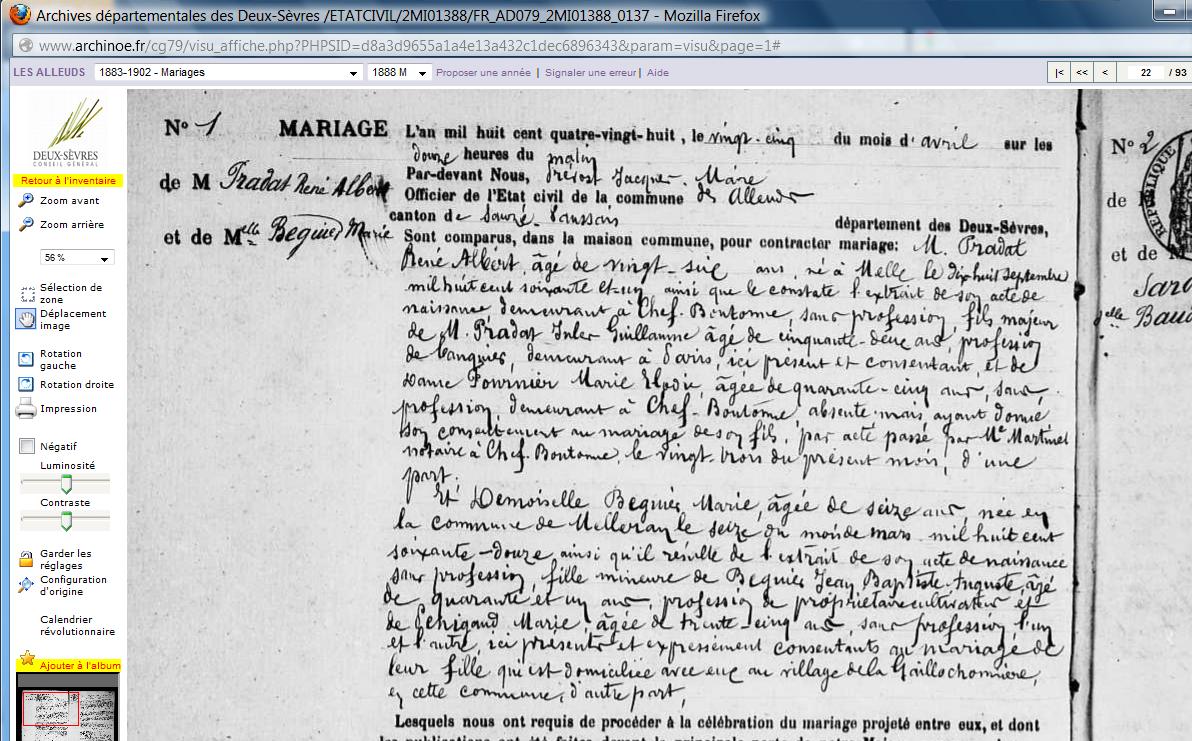 Archives départementales des Deux-Sèvres /ETATCIVIL/2MI01388/FR_AD079_2MI01388_0137 - Mozilla Firefox
www.archinoe.fr/cg79/visu_affiche.php?PHPSID=d8a3d9655a1a4e13a432c1dec6896343&param=visu&page=1#
LES ALLEUDS 1883-1902 - Mariages 1888 M Proposer une année | Signaler une erreur | Aide |< << < 22 / 93
DEUX-SÈVRES
CONSEIL GÉNÉRAL
Retour à l'inventaire
Zoom avant
Zoom arrière
56 %
Sélection de zone
Déplacement image
Rotation gauche
Rotation droite
Impression
Négatif
Luminosité
Contraste
Garder les réglages
Configuration d'origine
Calendrier révolutionnaire
Ajouter à l'album
N° 1 MARIAGE
de M Pradat René Albert
et de Melle Béguier Marie
L'an mil huit cent quatre-vingt-huit, le vingt-cinq du mois d'avril sur les
douze heures du matin
Par-devant Nous, Prévost Jacques, Maire
Officier de l'Etat civil de la commune des Alleuds
canton de Sauzé-Vaussais département des Deux-Sèvres,
Sont comparus, dans la maison commune, pour contracter mariage: M. Pradat
René Albert, âgé de vingt-six ans, né à Melle le dix huit septembre
mil huit cent soixante et un ainsi que le constate l'extrait de son acte de
naissance demeurant à Chef-Boutonne, sans profession, fils majeur
de M. Pradat Guillaume âgé de cinquante-deux ans, profession
de banquier, demeurant à Paris, ici présent et consentant, et de
Dame Fournier Marie Elodie, âgée de quarante-cinq ans, sans
profession, demeurant à Chef-Boutonne, absente mais ayant donné
son consentement au mariage de son fils, par acte passé par Me Martinet
notaire à Chef-Boutonne, le vingt-trois du présent mois, d'une
part.
Et Demoiselle Béguier Marie, âgée de seize ans, née en
la commune de Melleran le seize du mois de mars mil huit cent
soixante-douze ainsi qu'il résulte de l'extrait de son acte de naissance
sans profession, fille mineure de Béguier Jean Baptiste Auguste, âgé
de quarante et un ans, profession de propriétaire cultivateur et
de Marie, âgée de trente-cinq ans, sans profession, l'un
et l'autre, ici présents et expressément consentants au mariage de
leur fille qui est domiciliée avec eux au village de la Gaillochonnière,
en cette commune, d'autre part,
Lesquels nous ont requis de procéder à la célébration du mariage projeté entre eux, et dont
N° 2
de
et de M
RÉPUBLIQUE